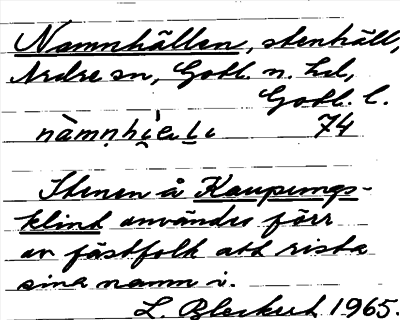 Namnhällen, stenhäll,
Ardre sn, Gotl. n. hd,
Gotl. l.
74
Stenen å Kaupungs-
klint användes förr
av fästfolk att rista
sina namn i.
L. Bleckert 1965.